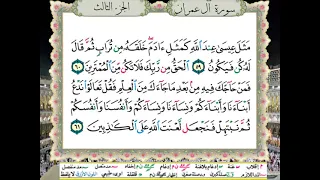 سورة آل عمران الجزء الثالث
مَثَلَ عِيسَىٰ عِندَ ٱللَّهِ كَمَثَلِ ءَادَمَ خَلَقَهُۥ مِن تُرَابٍ ثُمَّ قَالَ
لَهُۥ كُن فَيَكُونُ ٥٩ ٱلْحَقُّ مِن رَّبِّكَ فَلَا تَكُن مِّنَ ٱلْمُمْتَرِينَ ٦٠
فَمَنْ حَآجَّكَ فِيهِ مِنۢ بَعْدِ مَا جَآءَكَ مِنَ ٱلْعِلْمِ فَقُلْ تَعَالَوْا۟ نَدْعُ
أَبْنَآءَنَا وَأَبْنَآءَكُمْ وَنِسَآءَنَا وَنِسَآءَكُمْ وَأَنفُسَنَا وَأَنفُسَكُمْ
ثُمَّ نَبْتَهِلْ فَنَجْعَل لَّعْنَتَ ٱللَّهِ عَلَى ٱلْكَٰذِبِينَ ٦١